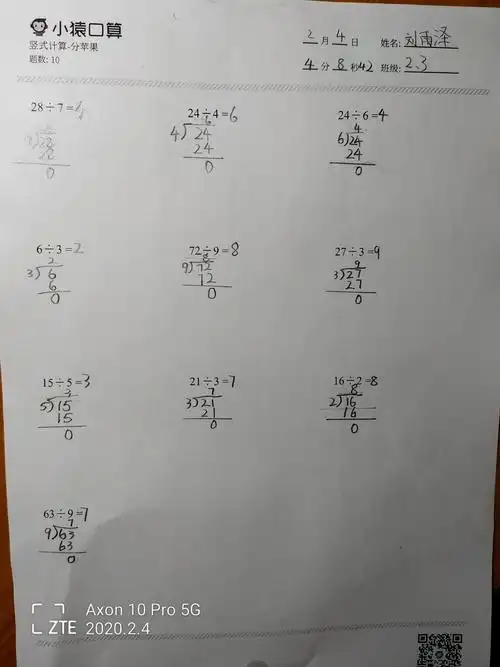 小猿口算
竖式计算-分苹果
题数: 10
2月4日 姓名: 刘雨泽
4分8秒42 班级: 2.3
28÷7=4 24÷4=6 24÷6=4
6 4
4)24 6)24
28 24 24
0 0 0
6÷3=2 72÷9=8 27÷3=9
2 8 9
3)6 9)72 3)27
6 72 27
0 0 0
15÷5=3 21÷3=7 16÷2=8
3 7 8
5)15 3)21 2)16
15 21 16
0 0 0
63÷9=7
7
9)63
63
0
Axon 10 Pro 5G
ZTE 2020.2.4